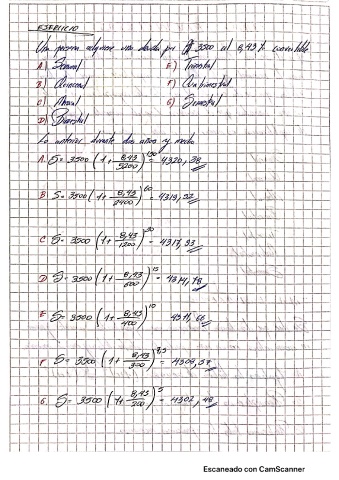 EJERCICIO
Una persona adquiere una deuda por $ 3500 al 8,43% convertible
A) Semanal E) Trimestral
B) Quincenal F) Cuatrimestral
C) Mensual G) Semestral
D) Bimestral
Lo anterior durante dos años y medio
A. S= 3500 (1+ 8,43/5200)^130 = 4320,38
B S= 3500 (1+ 8,43/2400)^60 = 4319,32
C S= 3500 (1+ 8,43/1200)^30 = 4317,93
D S= 3500 (1+ 8,43/600)^15 = 4314,78
E S= 3500 (1+ 8,43/400)^10 = 4311,66
F S= 3500 (1+ 8,43/300)^7,5 = 4308,57
G S= 3500 (1+ 8,43/200)^5 = 4302,48
Escaneado con CamScanner